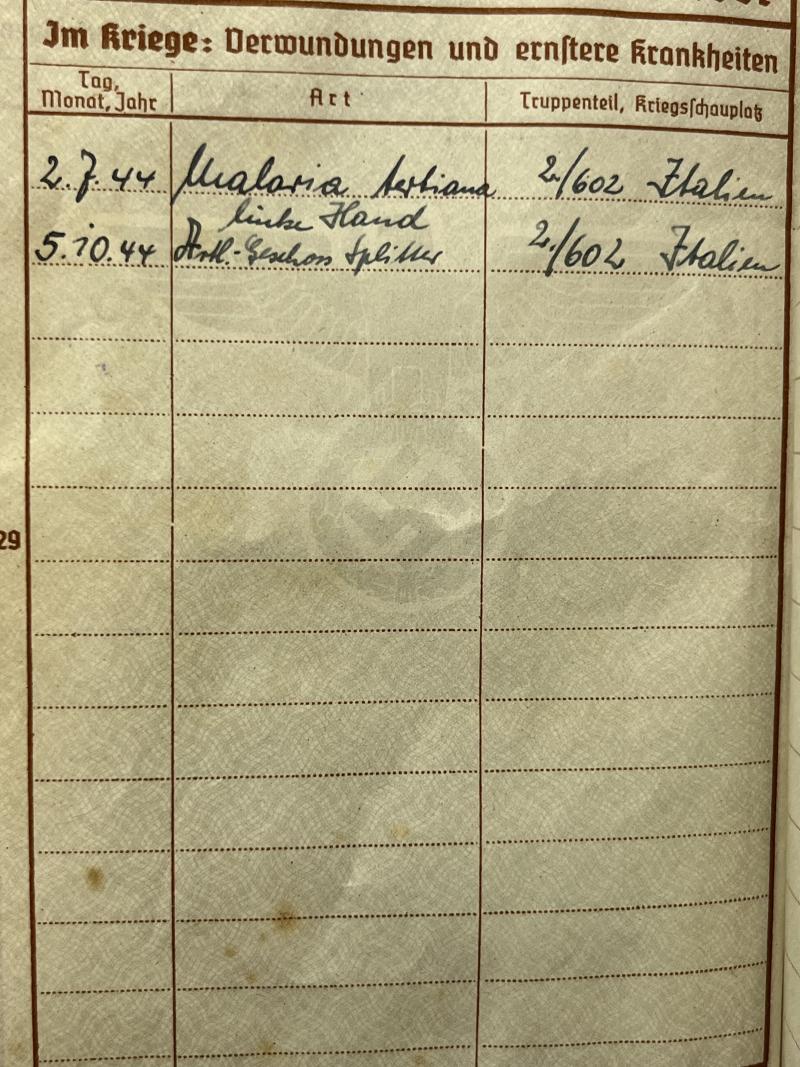 Im Kriege: Verwundungen und ernstere Krankheiten
Tag, Monat, Jahr
Art
Truppenteil, Kriegsschauplatz
2.7.44 Malaria tertiana 2./602 Italien
linke Hand
5.10.44 Artl.-Geschoss Splitter 2./602 Italien
29